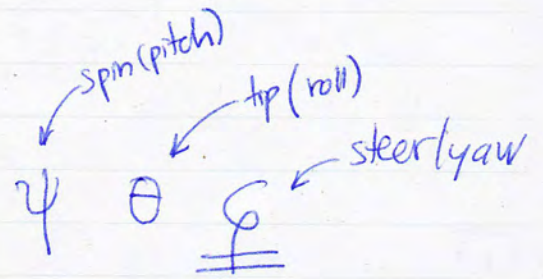 spin (pitch)
tip (roll)
steer/yaw
ψ θ φ